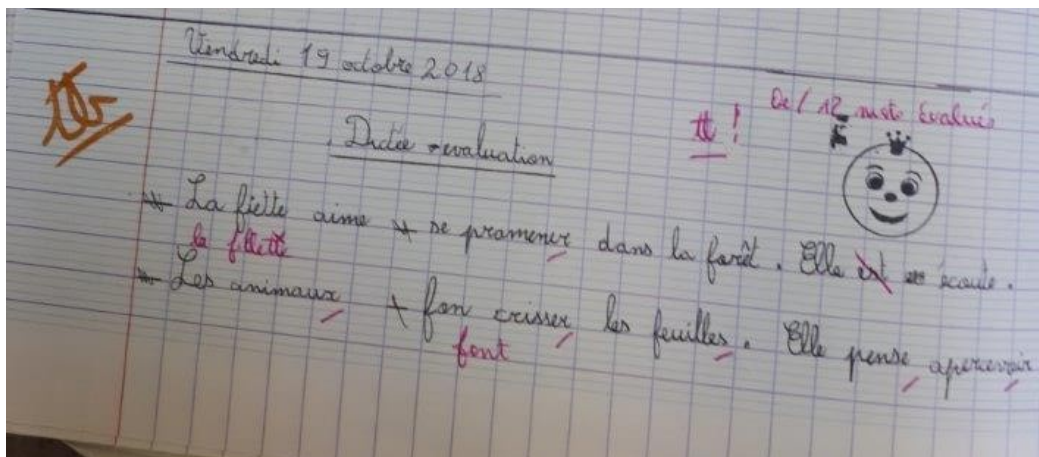 Vendredi 19 octobre 2018
TB
De 1 12 mots évalués
tt !
Dictée evaluation
La fiette aime se promener dans la forêt. Elle est écoute.
la fillette
Les animaux fon crisser les feuilles. Elle pense apercevoir
font